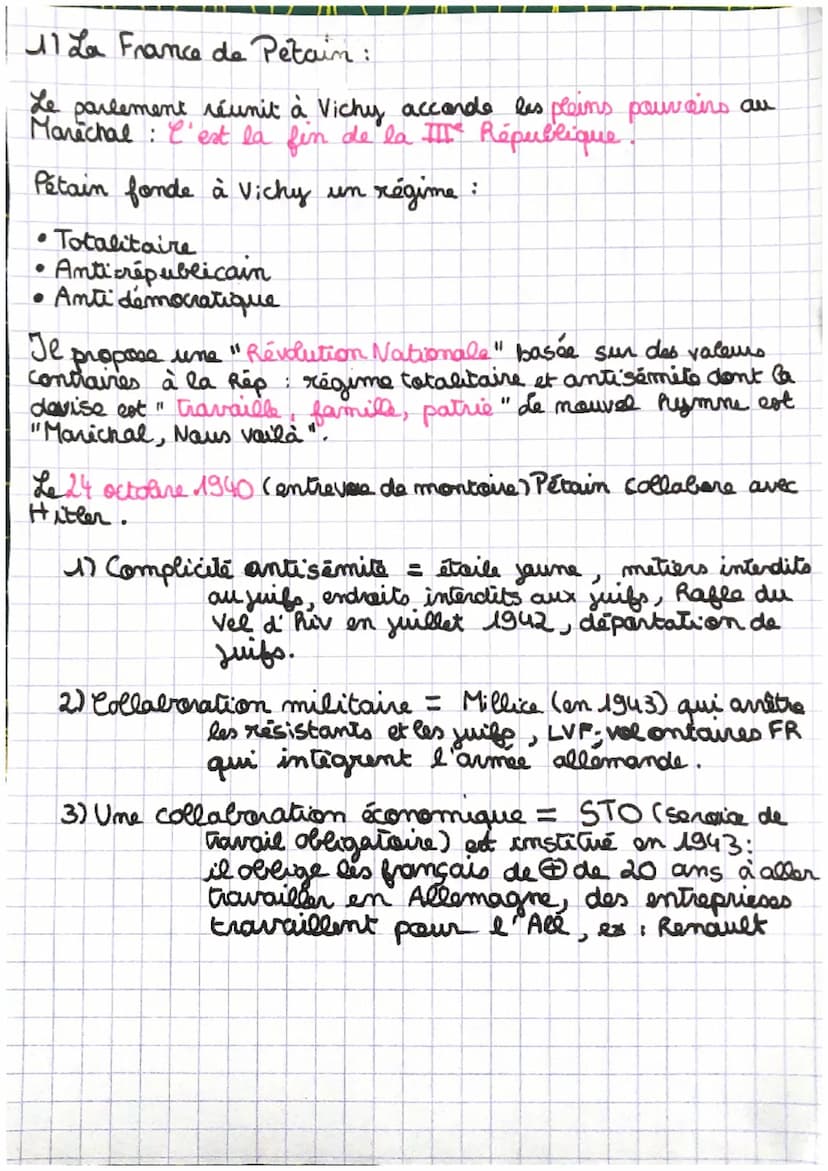 1) La France de Pétain :
Le parlement réunit à Vichy accorde les pleins pouvoirs au
Maréchal : C'est la fin de la IIIe République.
Pétain fonde à Vichy un régime :
• Totalitaire
• Antirépublicain
• Antidémocratique
Il propose une "Révolution Nationale" basée sur des valeurs
contraires à la Rép : régime totalitaire et antisémite dont la
devise est " travaille, famille, patrie" Le nouvel hymne est
"Maréchal, Nous voilà".
Le 24 octobre 1940 (entrevue de montoire) Pétain collabore avec
Hitler.
1) Complicité antisémite = étoile jaune, métiers interdits
au juifs, endroits interdits aux juifs, Rafle du
Vel d'Hiv en juillet 1942, déportation de
juifs.
2) Collaboration militaire = Millice (en 1943) qui arrête
les résistants et les juifs, LVF; volontaires FR
qui intègrent l'armée allemande.
3) Une collaboration économique = STO (service de
travail obligatoire) est institué en 1943:
il oblige les français de ⊕ de 20 ans à aller
travailler en Allemagne, des entreprises
travaillent pour l'All, ex : Renault